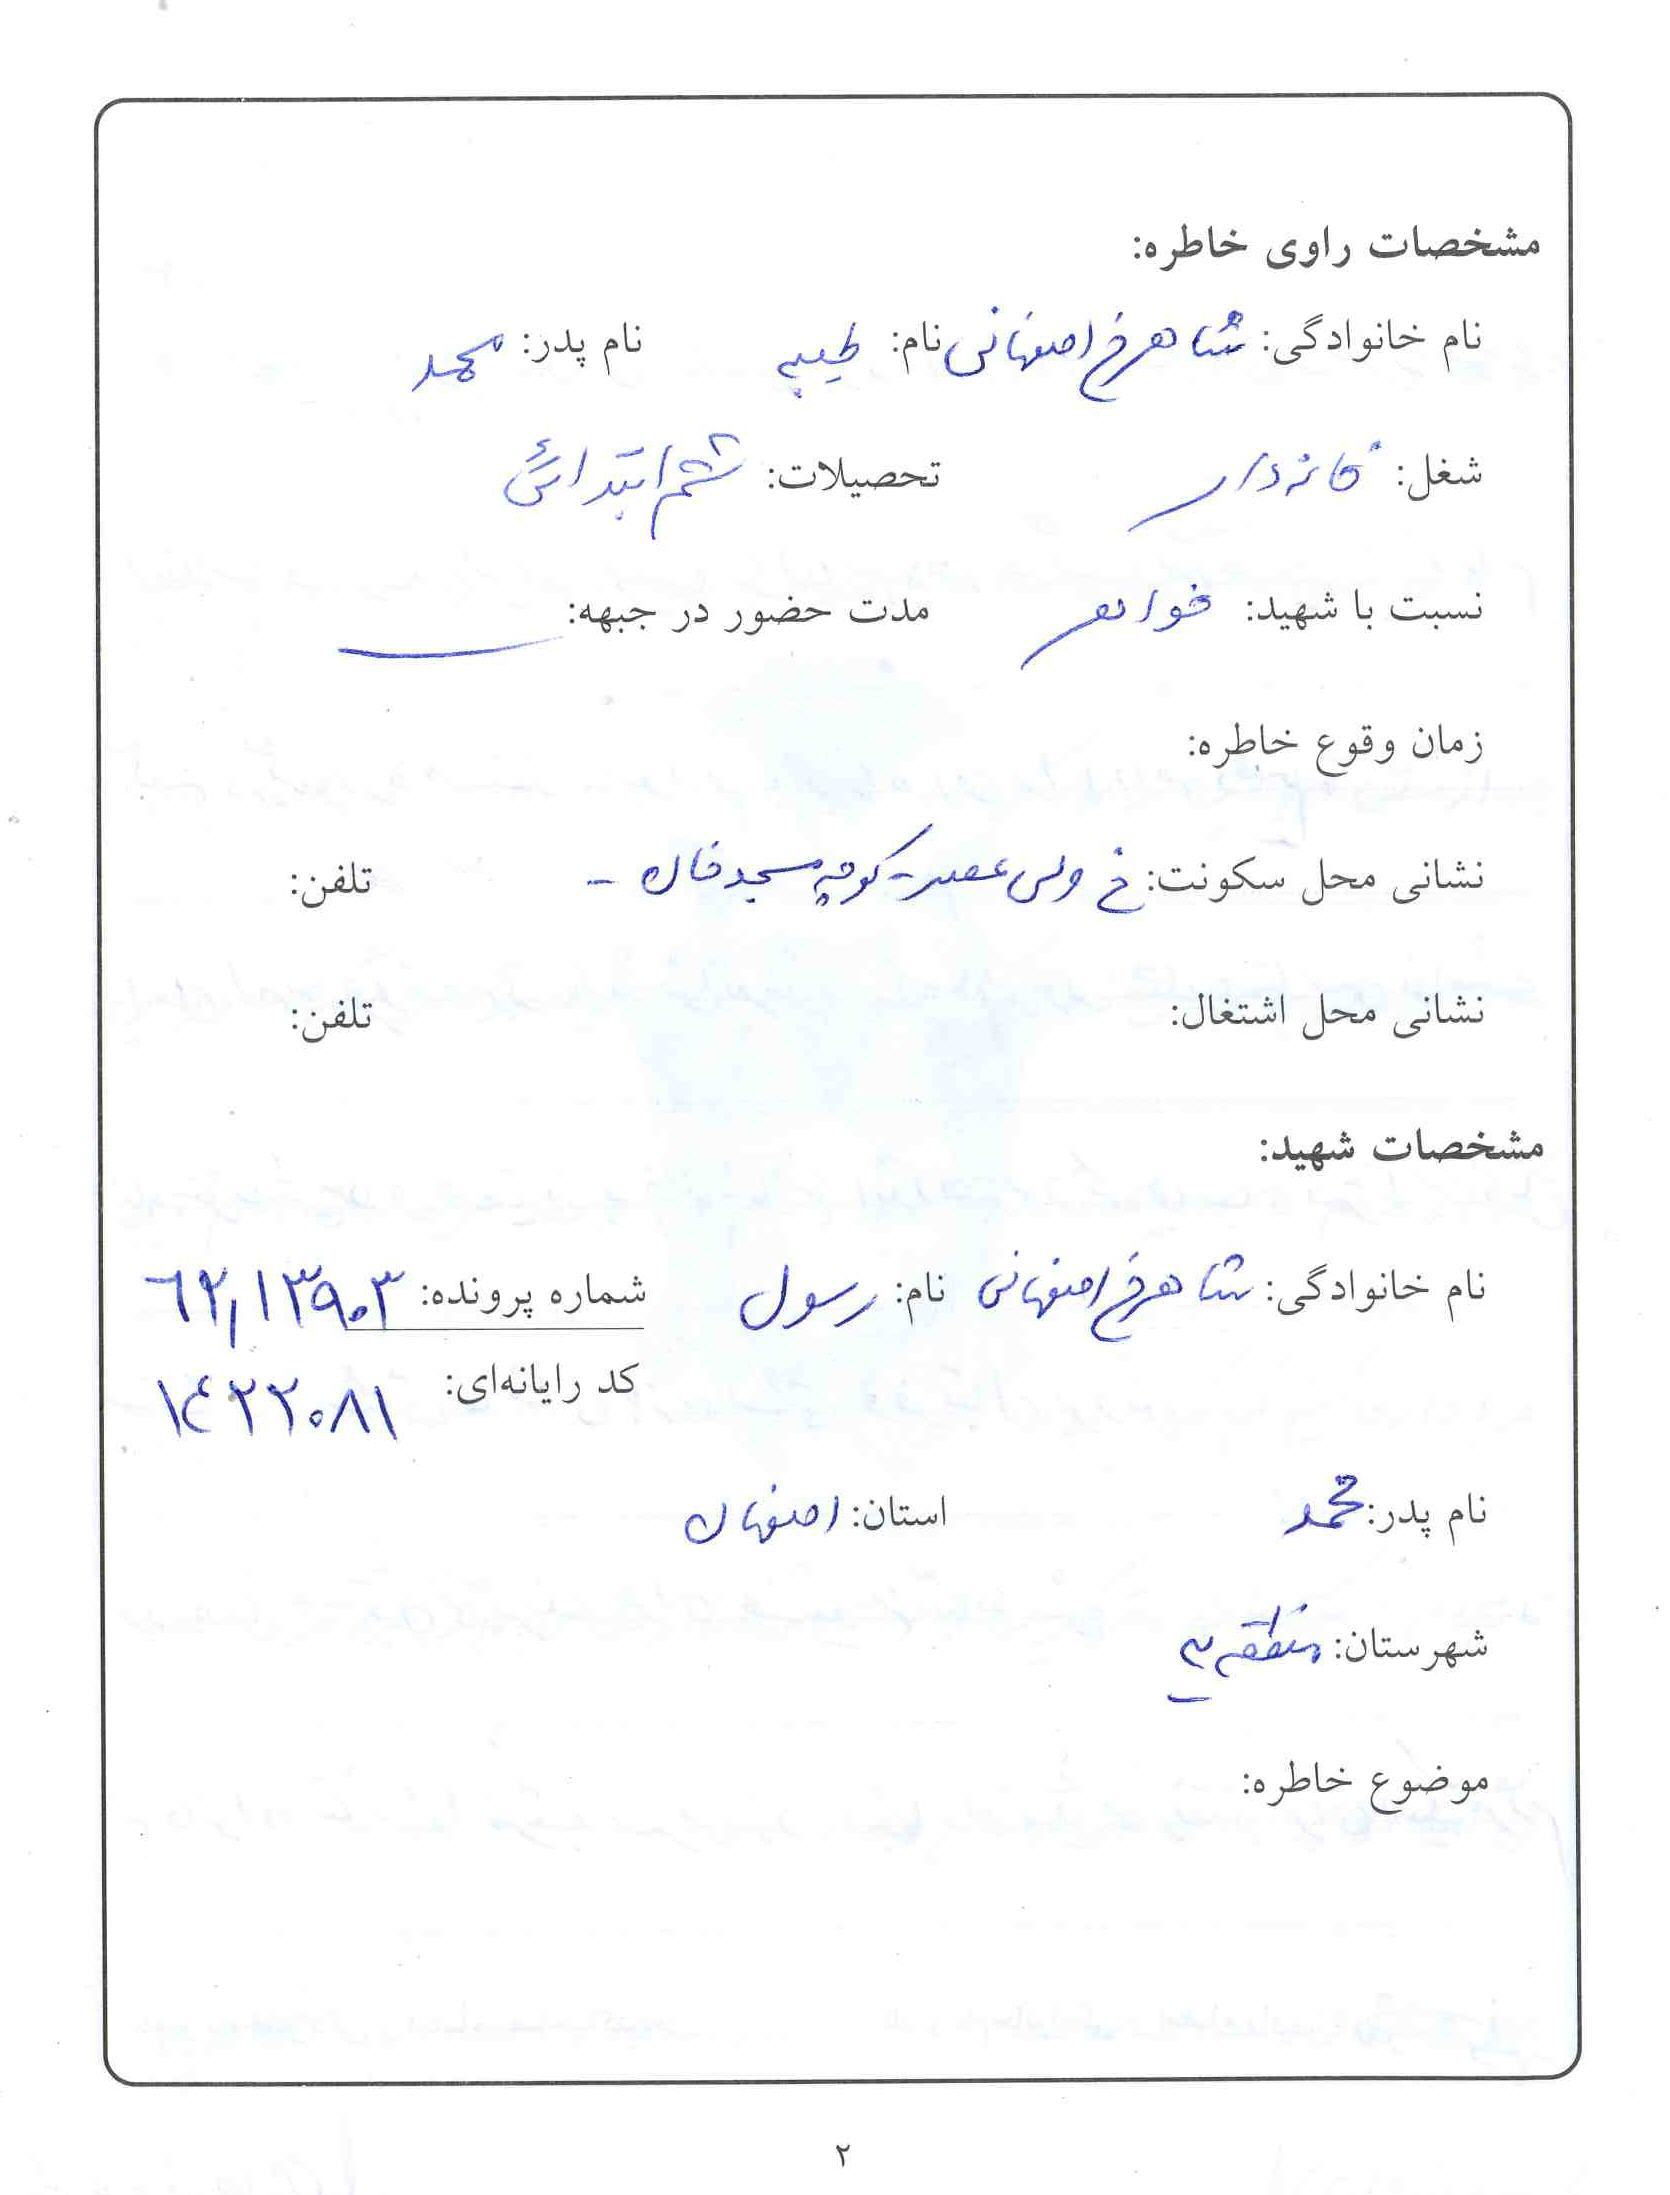 مشخصات راوی خاطره:
نام خانوادگی: شاهرخ اصفهانی نام: طیبه نام پدر: محمد
شغل: خانه دار تحصیلات: ششم ابتدائی
نسبت با شهید: خواهر مدت حضور در جبهه:
زمان وقوع خاطره:
نشانی محل سکونت: خ ولی عصر - کوچه مسجد خان - تلفن:
نشانی محل اشتغال: تلفن:
مشخصات شهید:
نام خانوادگی: شاهرخ اصفهانی نام: رسول شماره پرونده: ۶۲,۱۳۹۰۳
کد رایانه‌ای: ۱۴۲۲۰۸۱
نام پدر: محمد استان: اصفهان
شهرستان: منطقه ۳
موضوع خاطره:
۲